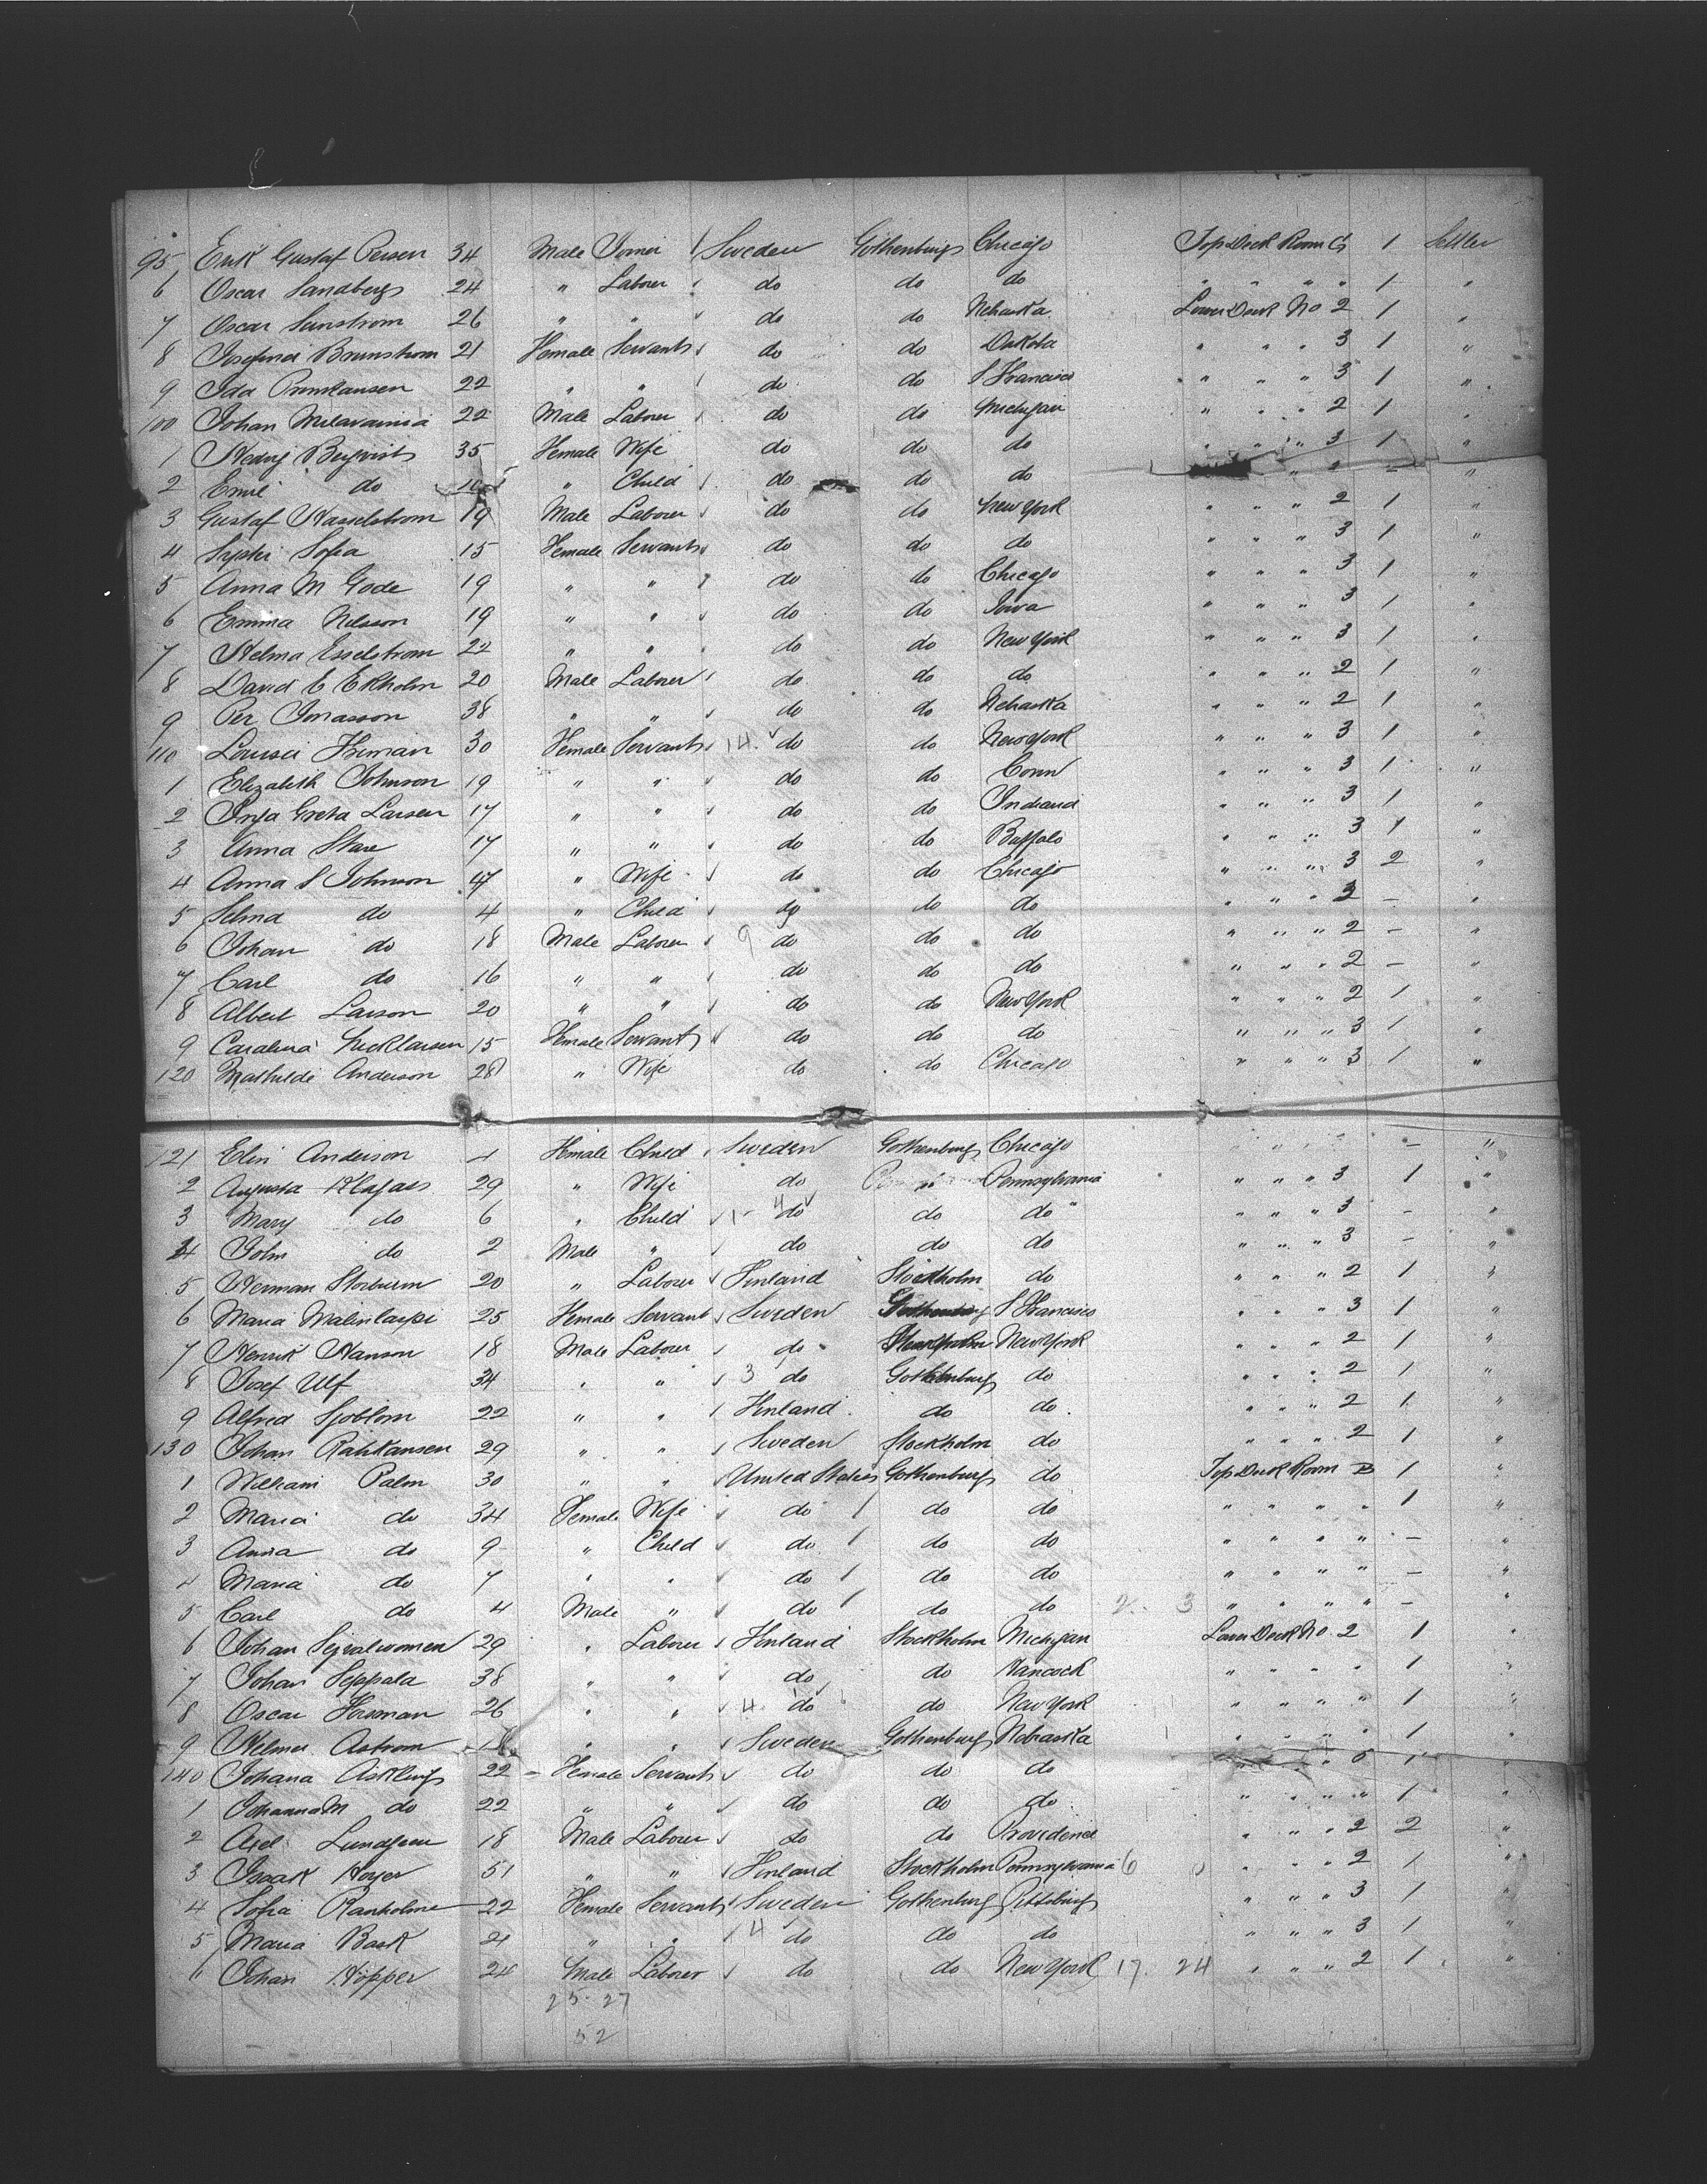 95 Erik Gustaf Persen 34 Male Joiner / Sweden Gothenburg Chicago Top Deck Room C 1 Settler
6 Oscar Sandberg 24 " Laborer do do do " " " " 1 "
7 Oscar 26 " " do do Nebraska Lower Deck No 2 1 "
8 Josefina Brunstrom 21 Female Servant do do Dakota " " " 3 1 "
9 Ida 22 " " do do S Francisco " " " 3 1 "
100 Johan 22 Male Laborer do do Michigan " " " 2 1 "
1 Hedvig Bergvist 35 Female Wife do do do " " " 3 1 "
2 Emil do " Child do do do " - "
3 Gustaf Hasselstrom 19 Male Laborer do do New York " " " 2 1 "
4 Sofia 15 Female Servant do do do " " " 3 1 "
5 Anna M Gode 19 " " do do Chicago " " " 3 1 "
6 Emma Nilsson 19 " " do do Iowa " " " 3 1 "
7 Helma Esselstrom 22 " " do do New York " " " 3 1 "
8 David E Ekholm 20 Male Laborer do do do " " " 2 1 "
9 Per Jonasson 38 " " do do Nebraska " " " 2 1 "
110 Lovisa 30 Female Servant 14 do do New York " " " 3 1 "
1 Elizabeth Johnson 19 " " do do Conn " " " 3 1 "
2 Inga Greta Larsen 17 " " do do Indiana " " " 3 1 "
3 Anna Stare 17 " " do do Buffalo " " " 3 1 "
4 Anna S Johnson 47 " Wife do do Chicago " " " 3 2 "
5 Selma do 4 " Child do do do " " " 3 - "
6 Johan do 18 Male Laborer 9 do do do " " " 2 - "
7 Carl do 16 " " do do do " " " 2 - "
8 Albert Larson 20 " " do do New York " " " 2 1 "
9 Carolina 15 Female Servant do do do " " " 3 1 "
120 Mathilde Anderson 28 " Wife do do Chicago " " " 3 1 "
121 Elin Anderson Female Child Sweden Gothenburg Chicago " " " - "
2 Augusta 29 " Wife do " Pennsylvania " " " 3 1 "
3 Mary do 6 " Child 1 - 4 do do do " " " 3 - "
4 John do 2 Male " do do do " " " 3 - "
5 Herman 20 " Laborer Finland Stockholm do " " " 2 1 "
6 Maria 25 Female Servant Sweden S Francisco " " " 3 1 "
7 Henrik Hanson 18 Male Laborer do New York " " " 2 1 "
8 Josef Ulf 34 " " 3 do Gothenburg do " " " 2 1 "
9 Alfred Sjoblom 22 " " Finland do do " " " 2 1 "
130 Johan 29 " " Sweden Stockholm do " " " 2 1 "
1 William Palm 30 " " United States Gothenburg do Top Deck Room B 1 "
2 Maria do 34 Female Wife do 1 do do " " " " 1 "
3 Anna do 9 " Child do 1 do do " " " " - "
4 Maria do 7 " " do 1 do do " " " " - "
5 Carl do 4 Male " do 1 do do 2 3 " " " " - "
6 Johan 29 " Laborer Finland Stockholm Michigan Lower Deck No 2 1 "
7 Johan Seppala 38 " " do do Hancock " " " " 1 "
8 Oscar Forsman 26 " " 4 do do New York " " " " 1 "
9 Astrom " " Sweden Gothenburg Nebraska " " " " 1 "
140 Johana 22 Female Servant do do do " 1 "
1 Johanna M do 22 " " do do do " " " " 1 "
2 Axel Lundgren 18 Male Laborer do do Providence " " " 2 2 "
3 Isaak 51 " " Finland Stockholm Pennsylvania 6 " " " 2 1 "
4 Sofia Ranholm 22 Female Servant Sweden Gothenburg Pittsburg " " " 3 1 "
5 Maria Back 21 " " 4 do do do " " " 3 1 "
6 Johan Hopper 24 Male Laborer do do New York 17 24 " " " 2 1 "
25 27
52